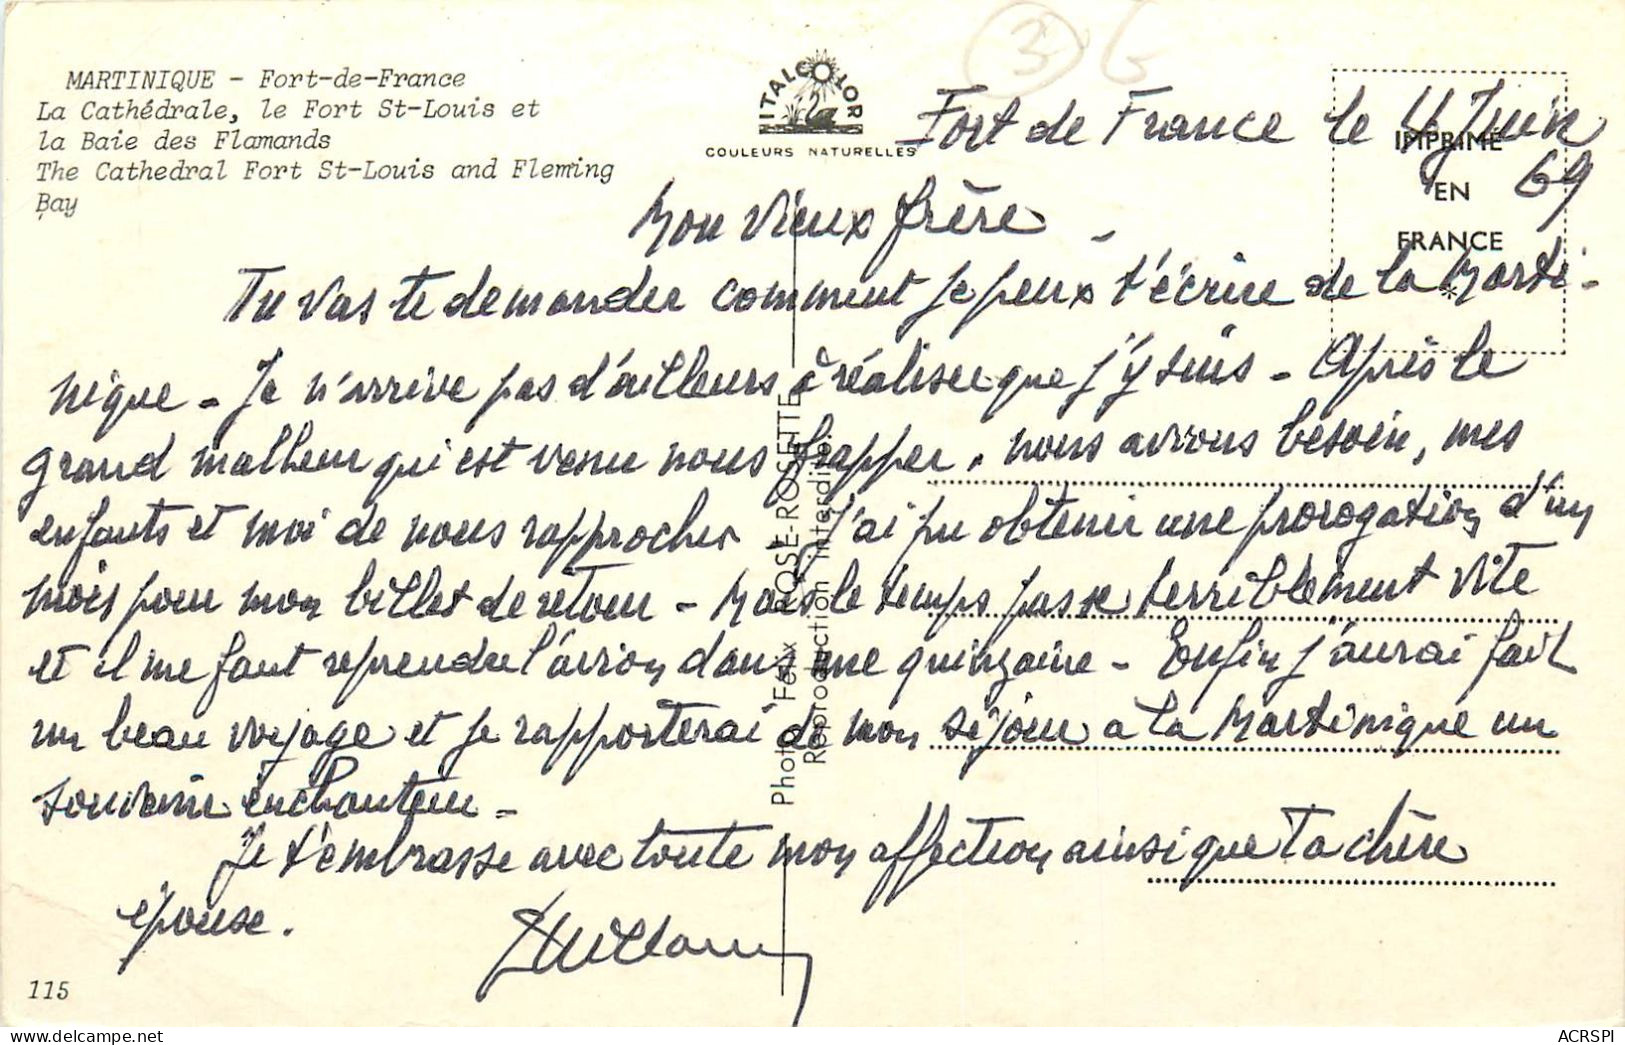 MARTINIQUE - Fort-de-France
La Cathédrale, le Fort St-Louis et
la Baie des Flamands
The Cathedral Fort St-Louis and Fleming
Bay
ITALCOLOR
COULEURS NATURELLES
3
IMPRIMÉ
EN
FRANCE
*
Fort de France le 4 Juin
69
Mon vieux frère -
Tu vas te demander comment je peux t'écrire de la Marti-
nique - Je n'arrive pas d'ailleurs à réaliser que j'y suis - Après le
grand malheur qui est venu nous frapper, nous avons besoin, mes
enfants et moi de nous rapprocher J'ai pu obtenir une prorogation d'un
mois pour mon billet de retour - Mais le temps passe terriblement vite
et il me faut reprendre l'avion dans une quinzaine - Enfin j'aurai fait
un beau voyage et je rapporterai de mon séjour à la Martinique un
souvenir enchanteur -
Je t'embrasse avec toute mon affection ainsi que ta chère
épouse.
Photo Félix ROSE-ROSETTE
Reproduction interdite.
115
ACRSPI